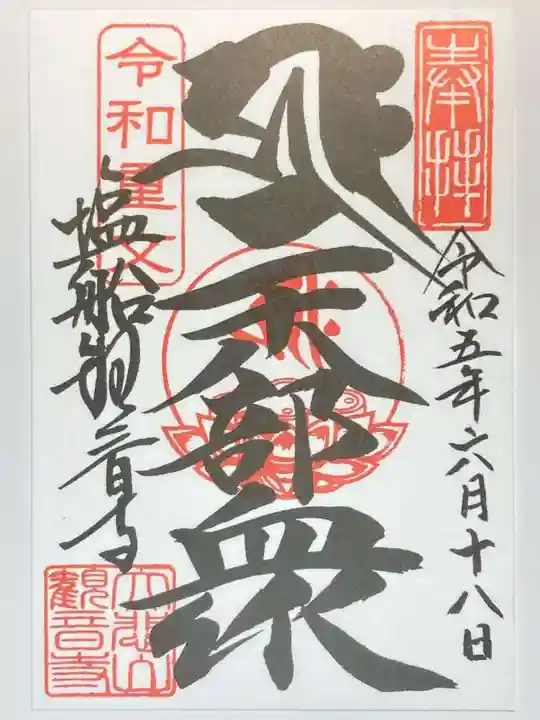 奉拝
令和五年六月十八日
天部衆
令和重文
塩船観音寺
大悲山
觀音寺